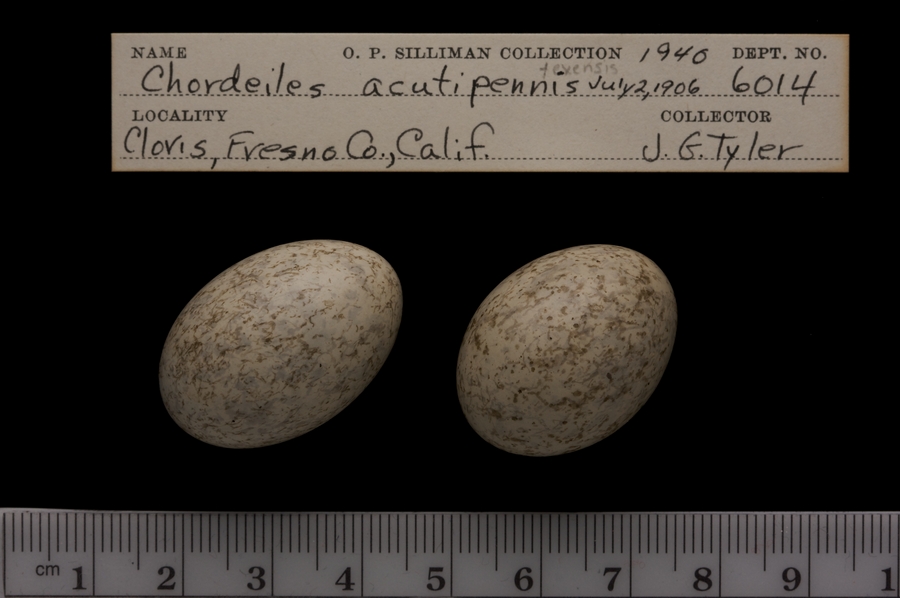 NAME O. P. SILLIMAN COLLECTION 1940 DEPT. NO.
texensis
Chordeiles acutipennis July 2, 1906 6014
LOCALITY COLLECTOR
Clovis, Fresno Co., Calif. J. G. Tyler
cm 1 2 3 4 5 6 7 8 9 1